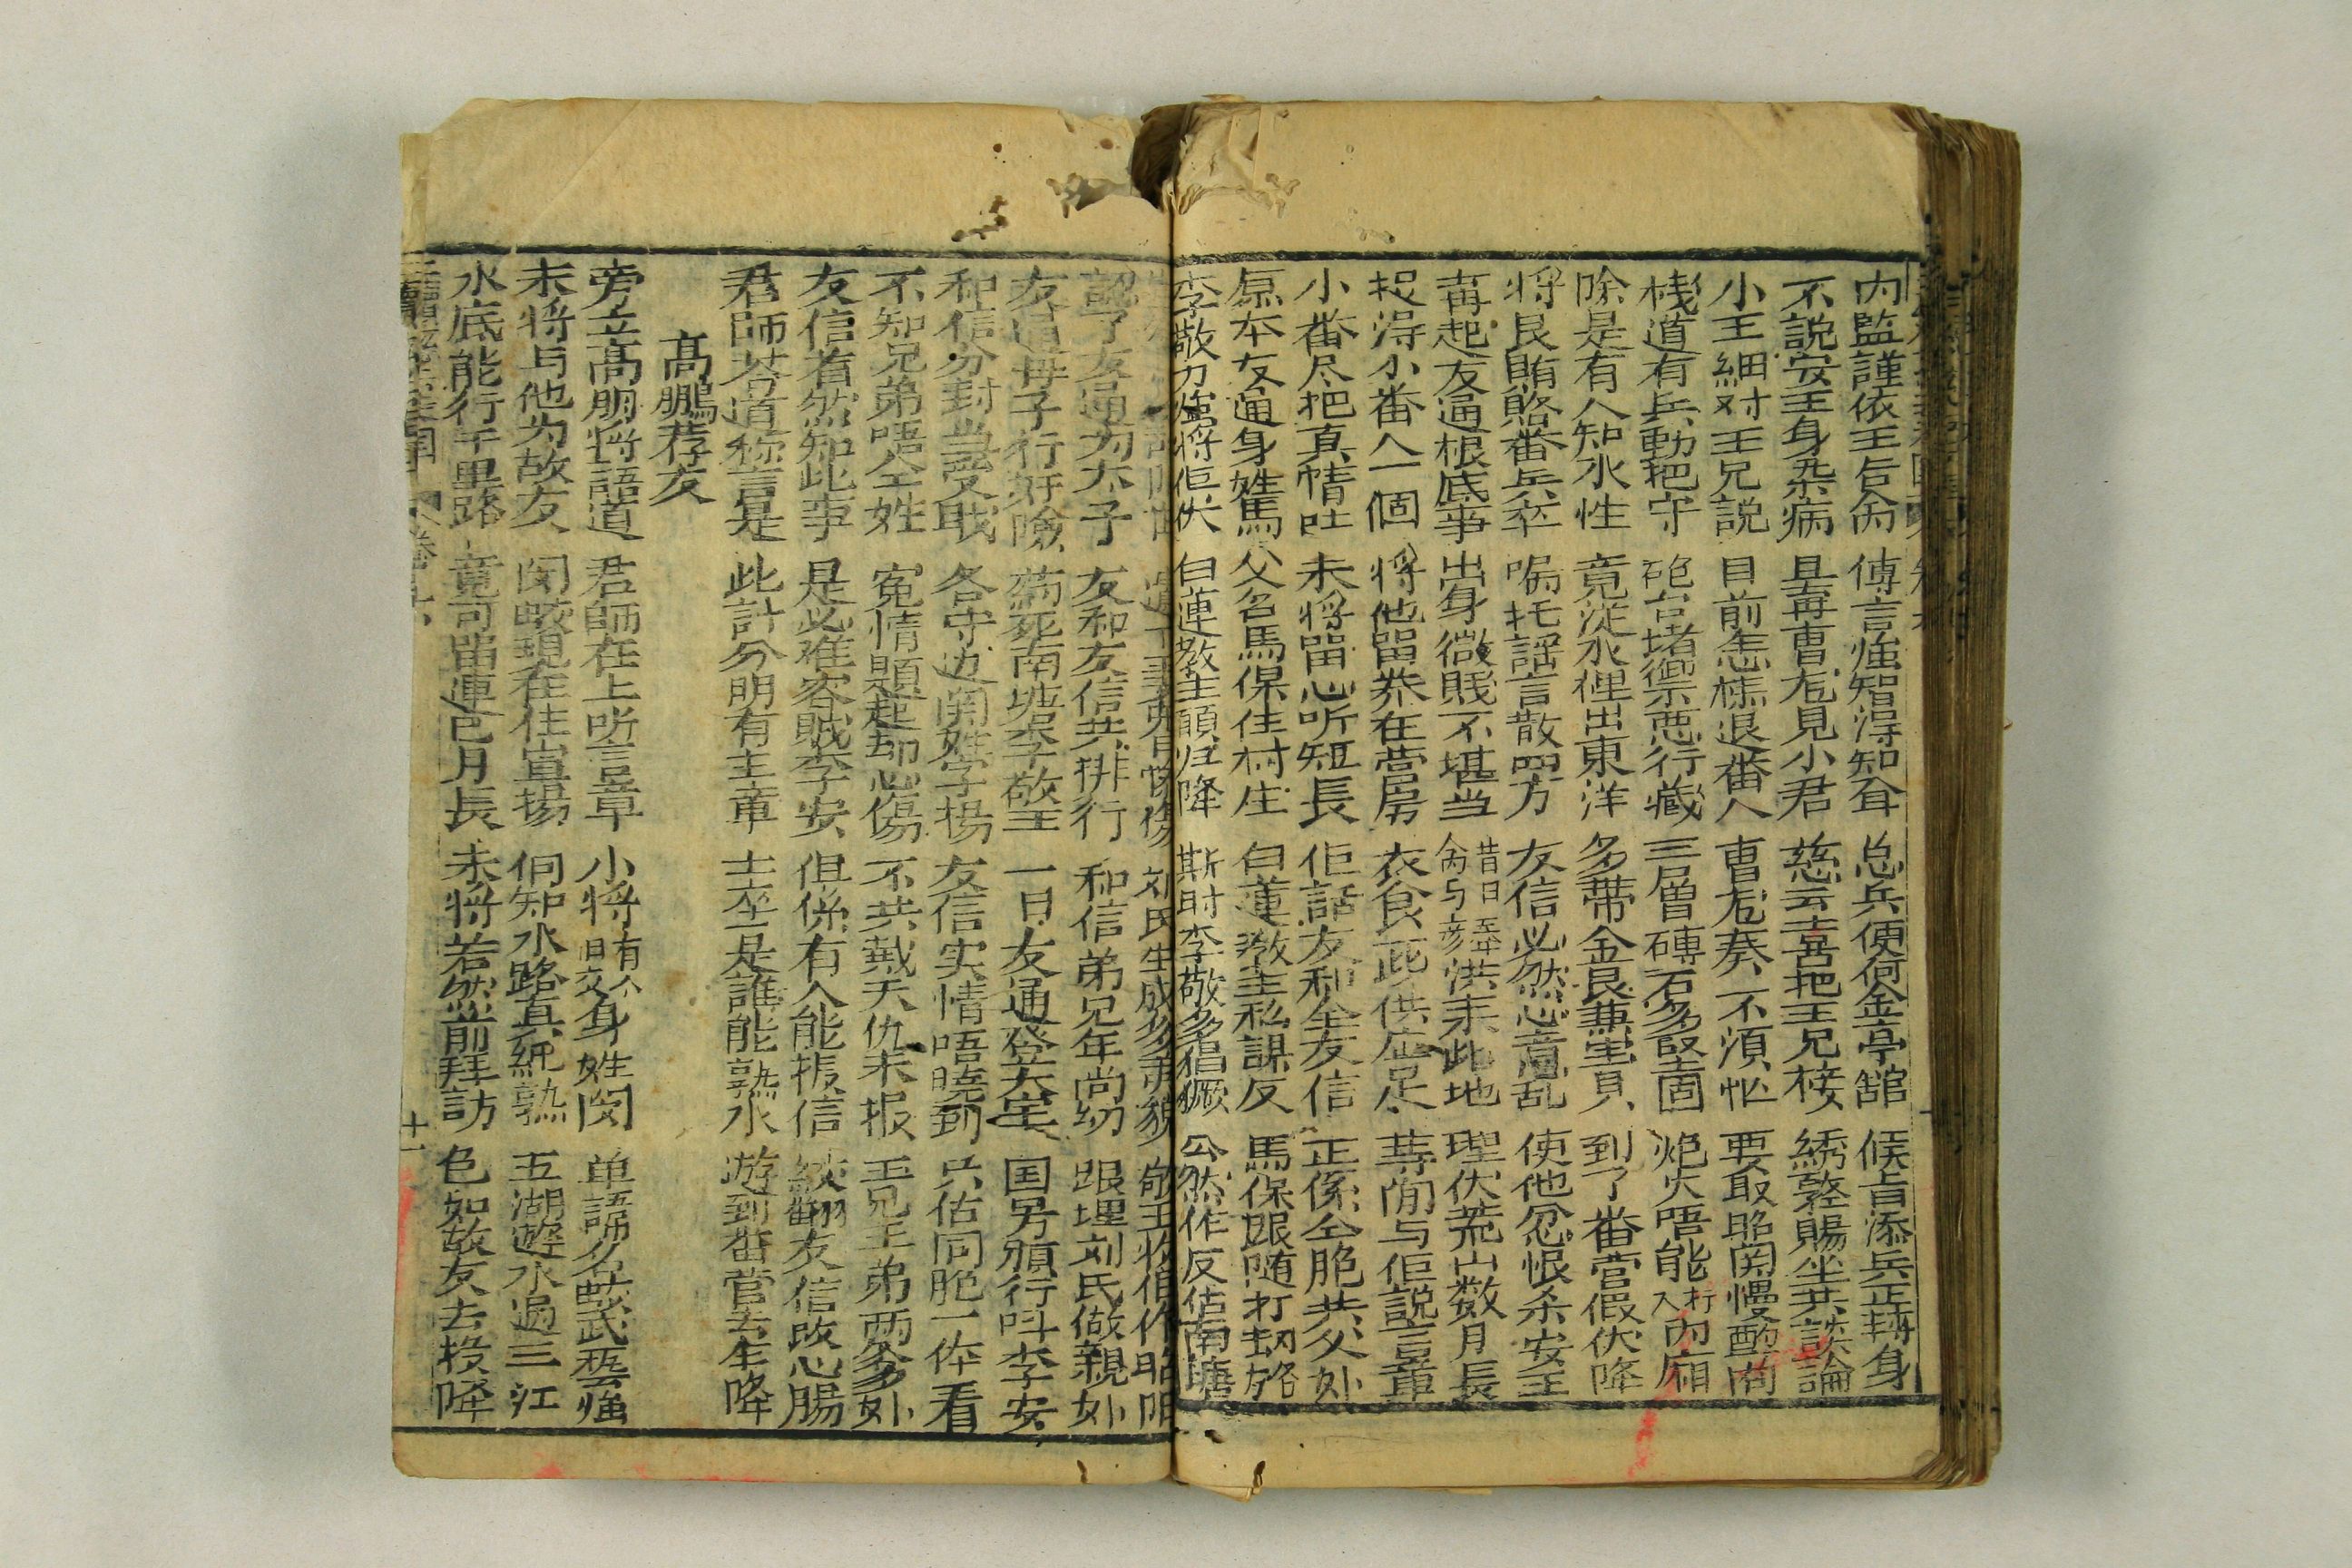 内監謹依王后命 傅言強智淂知 总兵便何金亭舘 候旨添兵正轉身
不説安王身染病 且再曹彪見小君 慈云吉占把王兄接 綉墪賜坐共談論
小王細对王兄説 目前怎樣退番人 曹彪奏不湏忙 要取昭関慢酌商
栈道有兵動把守 砲台堵禦悪行藏 三層磚石多坚固 炮火唔能打入内廂
除是有人知水性 竟従水裡出東洋 多帶金艮兼宝貝 到了番营假伏降
将艮賄賂番兵卒 嘱托謡言散四方 友信必然心意乱 使他忿恨杀安王
再起友通根底事 出身微賤不堪当 昔日 命与 洪来此地 埋伏荒山数月長
捉淂小番人一個 将他畄养在营房 衣食 供应足 䓁閒与佢説言章
小番尽把真情吐 未将畄心听短長 佢話友和仝友信 正係仝胞共父处
原本友通身姓馬 父名馬保住村庄 白蓮教主私謀反 馬保跟随打刧路旁
李敬力強将佢伏 白蓮教主願归降 斯时李敬多猖獗 公然作反佔南塘
刘氏生成多美貌
認了友通为太子 友和友信共排行 和信弟兄年尚幼 跟埋刘氏做親处
友通母子行奸險 葯死南塘李敬王 一日友通登大宝 国号頒行呌李安
和信分封当受戢 各守边関姓字揚 友信实情唔曉到 只估同胞一体看
不知兄弟唔仝姓 冤情題起却心傷 不共戴天仇未报 王兄王弟两爹处
友信若然知此事 是必难容賊李安 但係有人能振信 綾翻友信改心腸
君師荅道称言是 此計分明有主章 士卒是誰能熟水 遊到番营去生降
髙鵬荐友
旁立髙朋将語道 君師在上听言章 小将有个旧交身姓閔 单諱名蛟武藝強
末将与他为故友 閔蛟現在住宣揚 佢知水路真純熟 五湖遊水過三江
水底能行千里路 竟可畄連已月長 末将若然前拜訪 邑如故友去投降
十一